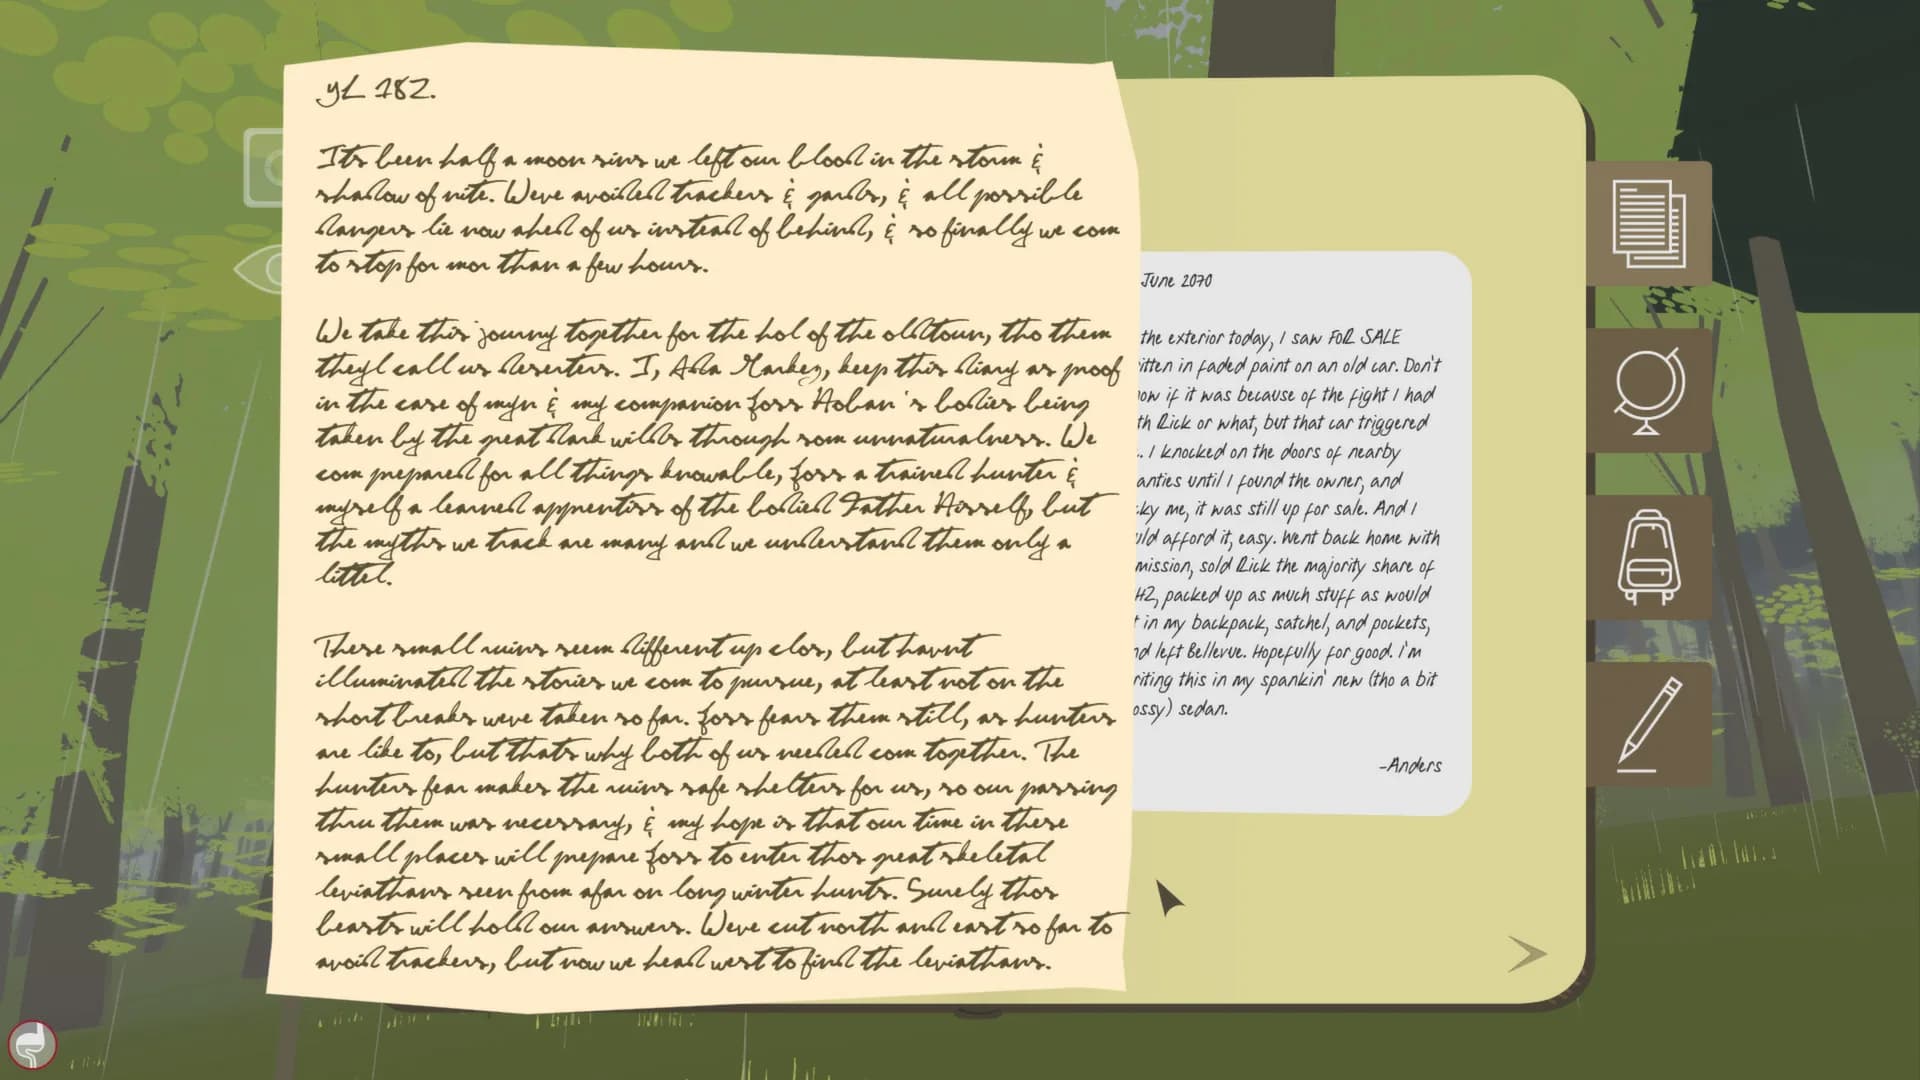 yL 182.
Its been half a moon sins we left our blood in the storm &
shadow of nite. Weve avoided trackers & gards, & all possible
dangers lie now ahed of us insted of behind, & so finally we com
to stop for mor than a few hours.
We take this journy together for the hol of the old toun, tho them
theyl call us deserters. I, Ada Markez, keep this diary as proof
in the case of myn & my companion Joss Hoban's bodies being
taken by the great dark wilds through som unnaturalness. We
com prepared for all things knowable, Joss a trained hunter &
myself a learned apprentiss of the bodied Father Hisself, but
the myths we track are many and we understand them only a
littel.
These small ruins seem different up clos, but havnt
illuminated the stories we com to pursue, at least not on the
short breaks weve taken so far. Joss fears them still, as hunters
are like to, but thats why both of us needed com together. The
hunters fear makes the ruins safe shelters for us, so our passing
thru them was necessary, & my hope is that our time in these
small places will prepare Joss to enter thos great skeletal
leviathans seen from afar on long winter hunts. Surely thos
beasts will hold our answers. Weve cut north and east so far to
avoid trackers, but now we head west to find the leviathans.
June 2070
the exterior today, I saw FOR SALE
itten in faded paint on an old car. Don't
ow if it was because of the fight I had
th Rick or what, but that car triggered
. I knocked on the doors of nearby
anties until I found the owner, and
ky me, it was still up for sale. And I
uld afford it, easy. Went back home with
mission, sold Rick the majority share of
H2, packed up as much stuff as would
t in my backpack, satchel, and pockets,
nd left Bellevue. Hopefully for good. I'm
riting this in my spankin' new (tho a bit
ossy) sedan.
-Anders